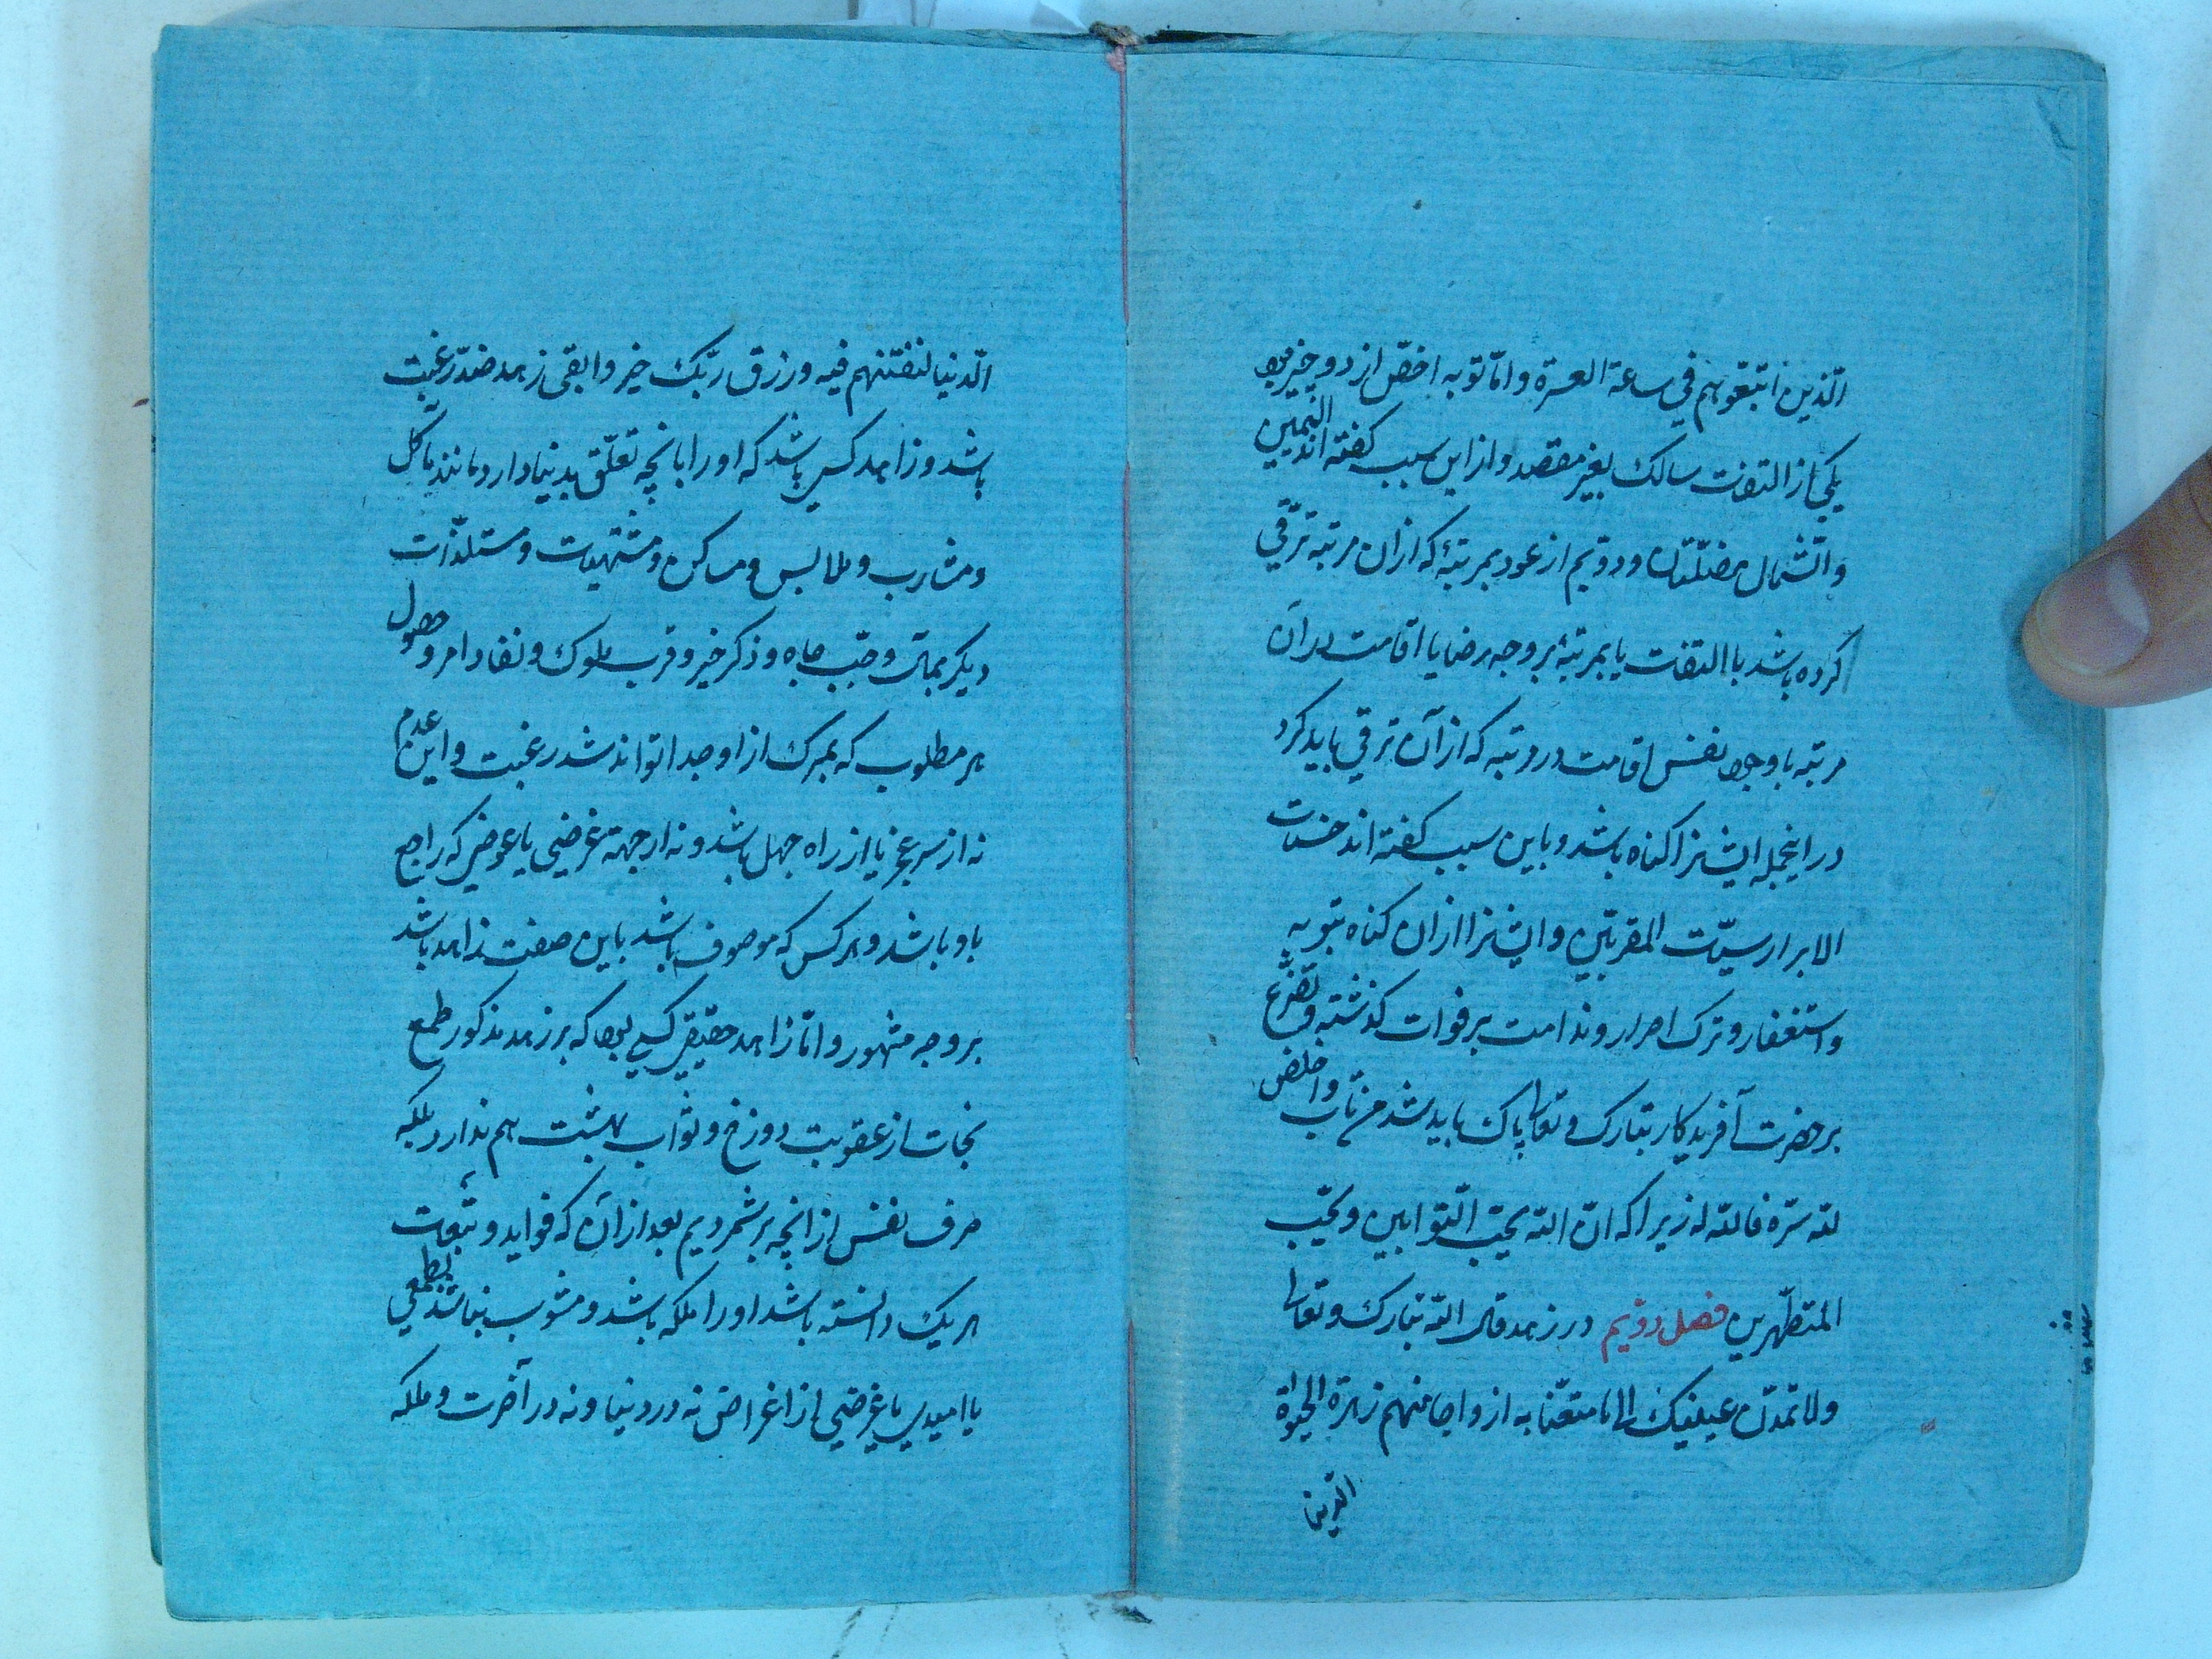 الّذین اتبعوهم فی ساعة العسرة و امّا توبه اخصّ از دو چیز بود
یکی از التفات سالک بغیر مقصد و از این سبب گفته اند الیمین
و الشّمال مضلّتان و دوّیم از عود بمرتبهٔ که ازان مرتبه ترقّی
کرده باشد با التفات یا بمرتبهٔ بر وجه رضا یا اقامت در آن
مرتبه با وجود نفس اقامت در رتبه که از آن ترقی باید کرد
در اینجمله ایشانرا کناه باشد و باین سبب کفته اند حسنات
الابرار سیّئات المقربین و ایشانرا ازان کناه بتوبه
و استغفار و ترک اصرار و ندامت بر فوات کذشته و تضرّع
بر حضرت آفریدکار تبارک و تعالی پاک باید شد من تاب و اخلص
للّه سرّه فاللّه له زیرا که انّ اللّه یحبّ التّوابین و یحبّ
المتطهّرین فصل دوّیم در زهد قال اللّه تبارک و تعالی
و لا تمدّن عینیک الی ما متعّنا به ازواجا منهم زهرة الحیٰوة
الدّنیا
الدّنیا لنفتنهم فیه و رزق ربّک خیر و ابقی زهد ضدّ رغبت
باشد و زاهد کسی باشد که او را بانچه تعلّق بدنیا دارد مانند مآکل
و مشارب و ملابس و مساکن و مشتهیات و مستلذّات
دیکر بمال و حبّ جاه و ذکر خیر و قرب ملوک و نفاد امر و حصول
هر مطلوب که بمرک از او جدا تواند شد رغبت و این عدم
نه از سر عجز یا از راه جهل باشد و نه از جهة غرضی یا عوضی که راجع
باو باشد و هر کس که موصوف باشد باین صفت زاهد باشد
بر وجه مشهور و امّا زاهد حقیقی کسی بود که بر زهد مذکور طمع
نجات از عقوبت دوزخ و ثواب بهشت هم ندارد بلکه
صرف نفس از انچه بر شمردیم بعد از آن که فواید و تبعات
هر یک دانسته باشد او را ملکه باشد و مشوب نباشد بطمعی
یا امیدی یا غرضی از اغراض نه در دنیا و نه در آخرت و ملکه